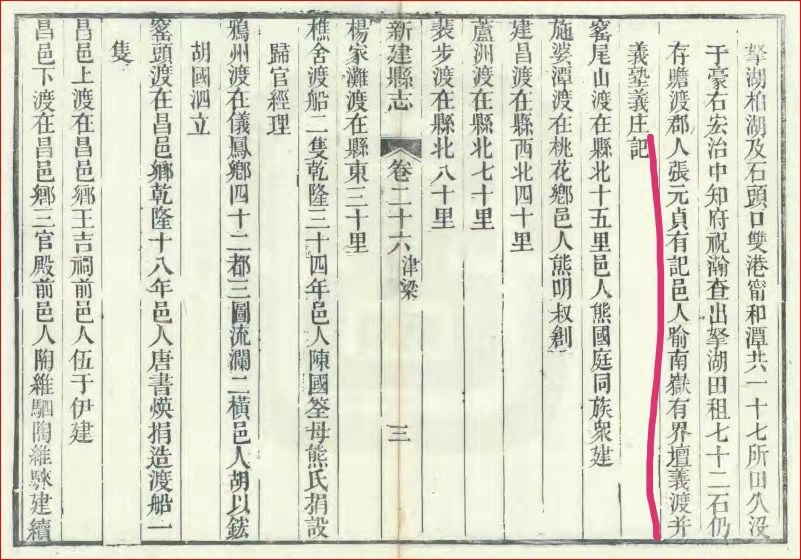 拏湖柏湖及石頭口雙港甯和潭共一十七所田久沒
于豪右宏治中知府祝瀚查出拏湖田租七十二石仍
存贍渡郡人張元貞有記邑人喻南嶽有界壇義渡并
義塾義庄記
窰尾山渡在縣北十五里邑人熊國庭同族衆建
施婆潭渡在桃花鄉邑人熊明叔創
建昌渡在縣西北四十里
蘆洲渡在縣北七十里
裴步渡在縣北八十里
新建縣志 卷二十六 津梁 三
楊家灘渡在縣東三十里
樵舍渡船二隻乾隆三十四年邑人陳國筌母熊氏捐設
歸官經理
鴉州渡在儀鳳鄉四十二都三圖流瀾二橫邑人胡以鋐
胡國泗立
窰頭渡在昌邑鄉乾隆十八年邑人唐書煐捐造渡船一
隻
昌邑上渡在昌邑鄉王吉祠前邑人伍于伊建
昌邑下渡在昌邑鄉三官殿前邑人陶維駟陶維騋建續